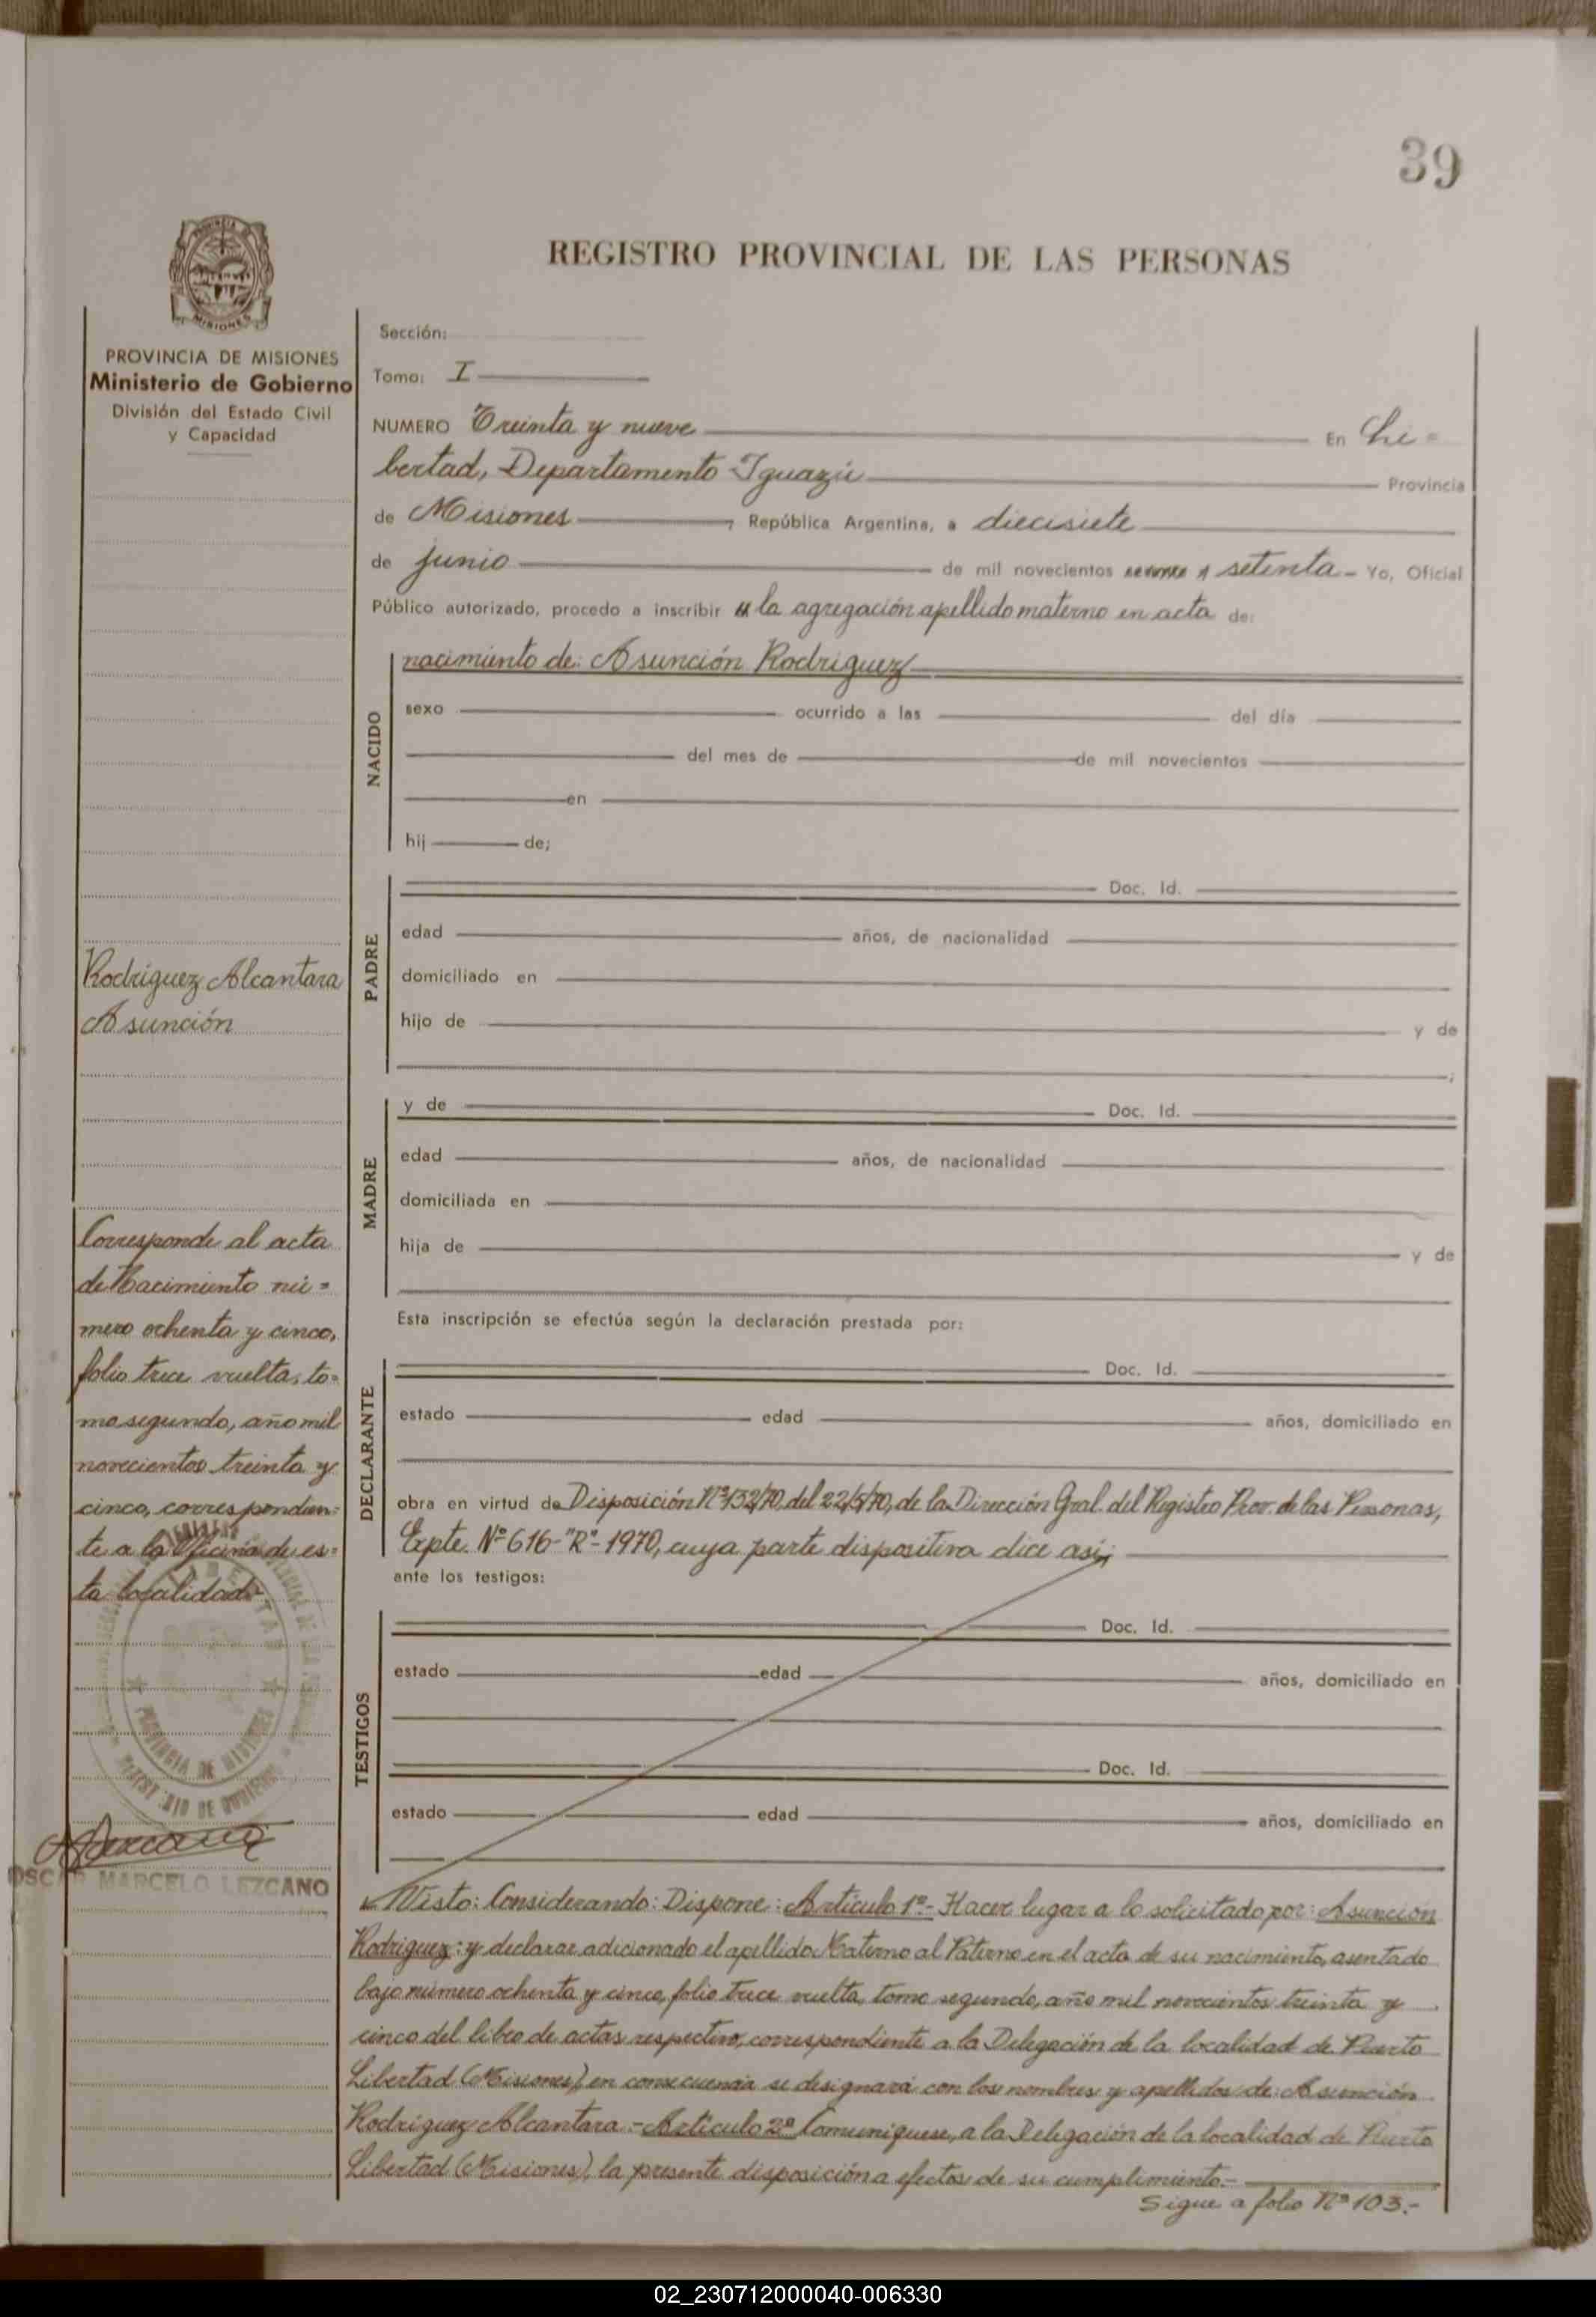 39
PROVINCIA DE
MISIONES
REGISTRO PROVINCIAL DE LAS PERSONAS
PROVINCIA DE MISIONES
Ministerio de Gobierno
División del Estado Civil
y Capacidad
Sección:
Tomo: I
NUMERO Treinta y nueve En Li=
bertad, Departamento Iguazú Provincia
de Misiones, República Argentina, a diecisiete
de junio de mil novecientos setenta - Yo, Oficial
Público autorizado, procedo a inscribir la agregación apellido materno en acta de:
NACIDO
nacimiento de: Asunción Rodriguez
sexo ocurrido a las del día
del mes de de mil novecientos
en
hij de;
PADRE
Doc. Id.
edad años, de nacionalidad
domiciliado en
hijo de y de
;
Rodriguez Alcantara
Asunción
MADRE
y de Doc. Id.
edad años, de nacionalidad
domiciliada en
hija de y de
Esta inscripción se efectúa según la declaración prestada por:
DECLARANTE
Doc. Id.
estado edad años, domiciliado en
obra en virtud de Disposición Nº132/70, del 22/5/70, de la Dirección Gral. del Registro Prov. de las Personas,
Expte. Nº 616-"R"-1970, cuya parte dispositiva dice así;
ante los testigos:
Corresponde al acta
de Nacimiento nú=
mero ochenta y cinco,
folio trece vuelta, to=
mo segundo, año mil
novecientos treinta y
cinco, correspondien=
te a la Oficina de es=
ta localidad.
PROVINCIA DE MISIONES
OSCAR MARCELO LEZCANO
TESTIGOS
Doc. Id.
estado edad años, domiciliado en
Doc. Id.
estado edad años, domiciliado en
Visto: Considerando: Dispone: Artículo 1º- Hacer lugar a lo solicitado por: Asunción
Rodriguez: y declarar adicionado el apellido Materno al Paterno en el acta de su nacimiento, asentado
bajo número ochenta y cinco, folio trece vuelta, tomo segundo, año mil novecientos treinta y
cinco del libro de actas respectivo, correspondiente a la Delegación de la localidad de Puerto
Libertad (Misiones), en consecuencia se designará con los nombres y apellidos de: Asunción
Rodriguez Alcantara.- Artículo 2º Comuníquese, a la Delegación de la localidad de Puerto
Libertad (Misiones), la presente disposición a efectos de su cumplimiento.-
Sigue a folio Nº 103.-
02_230712000040-006330